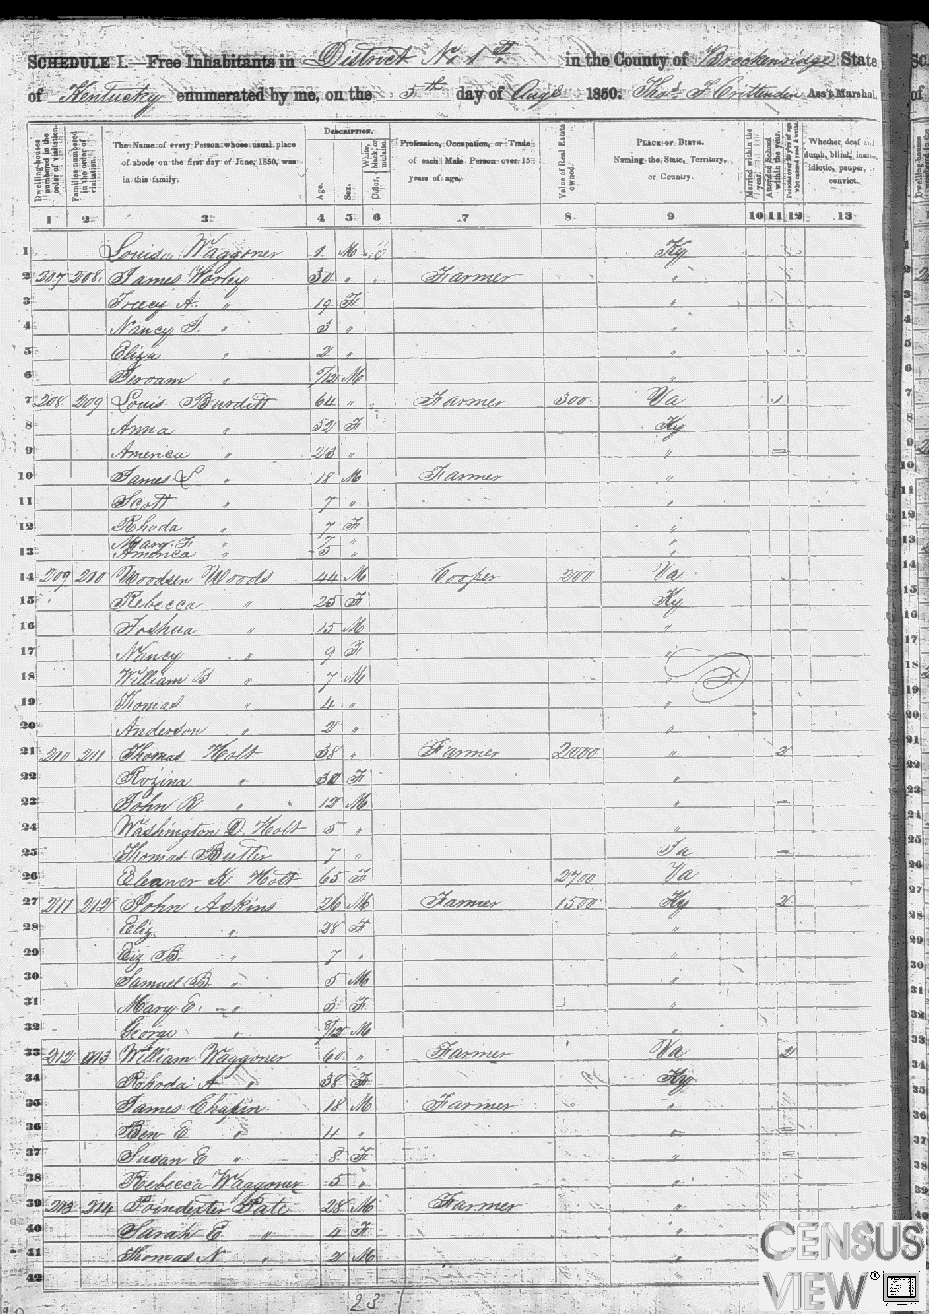 SCHEDULE I.—Free Inhabitants in District No. 1st in the County of Breckenridge State
of Kentucky enumerated by me, on the 5th day of Aug 1850. Thos. Crittenden Ass't Marshal.
Dwelling-houses numbered in the order of visitation.
Families numbered in the order of visitation.
The Name of every Person whose usual place of abode on the first day of June, 1850, was in this family.
DESCRIPTION.
Age.
Sex.
Color, White, black, or mulatto.
Profession, Occupation, or Trade of each Male Person over 15 years of age.
Value of Real Estate owned.
PLACE OF BIRTH. Naming the State, Territory, or Country.
Married within the year.
Attended School within the year.
Persons over 20 y'rs of age who cannot read & write.
Whether deaf and dumb, blind, insane, idiotic, pauper, or convict.
1 2 3 4 5 6 7 8 9 10 11 12 13
1 Louisa Waggoner 1 M Ky
2 207 208 James Worley 30 " Farmer "
3 A. " 19 F "
4 Nancy " 3 " "
5 Eliza " 2 " "
6 " /12 M "
7 208 209 Louis Burditt 64 " Farmer 300 Va 1
8 Anna " 52 F Ky
9 America " 23 " "
10 James L " 18 M Farmer "
11 Scott 7 " "
12 Rhoda " 7 F "
Mary F " 7 " "
13 America " 5 " "
14 209 210 Woodsen Woods 44 M Cooper 200 Va
15 Rebecca " 25 F Ky
16 Joshua " 15 M "
17 Nancy " 9 F "
18 William B " 7 M "
19 Thomas " 4 " "
20 Anderson " 2 " "
21 210 211 Thomas Holt 38 " Farmer 2000 " 2
22 Rozina " 30 F "
23 John R " 12 M "
24 Washington D. Holt 5 " "
25 Thomas Butler 7 " Ia
26 Eleaner M Holt 65 F 2700 Va
27 211 212 John Adkins 26 M Farmer 1500 Ky 2
28 Eliz " 28 F "
29 Eliz B. " 7 " "
30 Samuel B " 5 M "
31 Mary E. " 3 F "
32 George " /12 M "
33 212 213 William Waggoner 60 " Farmer Va 2
34 Rhoda A. " 38 F Ky
35 James Chapin 18 M Farmer "
36 Ben E " 4 " "
37 Susan E " 8 F "
38 Rebecca Waggoner 5 "
39 213 214 Poindexter Pate 28 M Farmer "
40 Sarah E " 4 F "
41 Thomas N " 2 M "
42
23
CENSUS
VIEW®